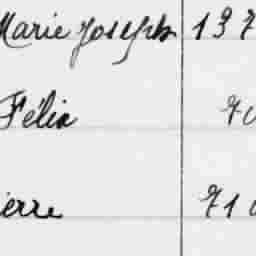 Marie Joseph 137
Félix 70
ierre 710